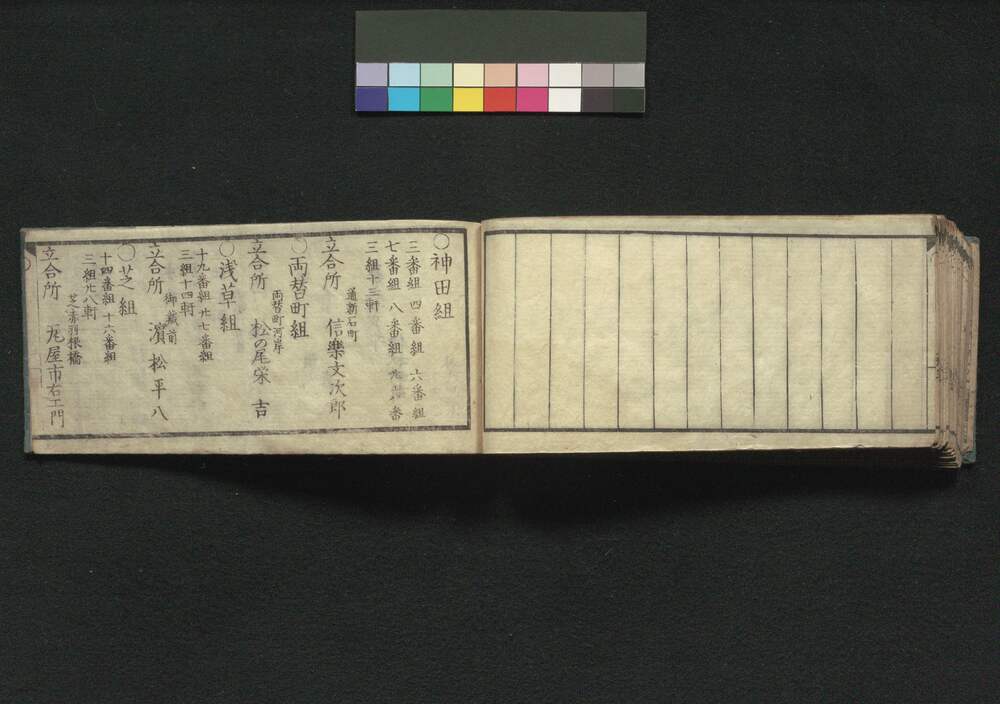 〇神田組
三番組 四番組 六番組
七番組 八番組 番
三組十三軒
通新石町
立合所 信樂文次郎
〇両替町組
両替町河岸
立合所 松の尾栄吉
〇浅草組
十九番組 廿七番組
三組十四軒
御蔵前
立合所 濵松平八
〇芝組
十四番組 十六番組
三組廿八軒
芝赤羽根橋
立合所 屋市右エ門